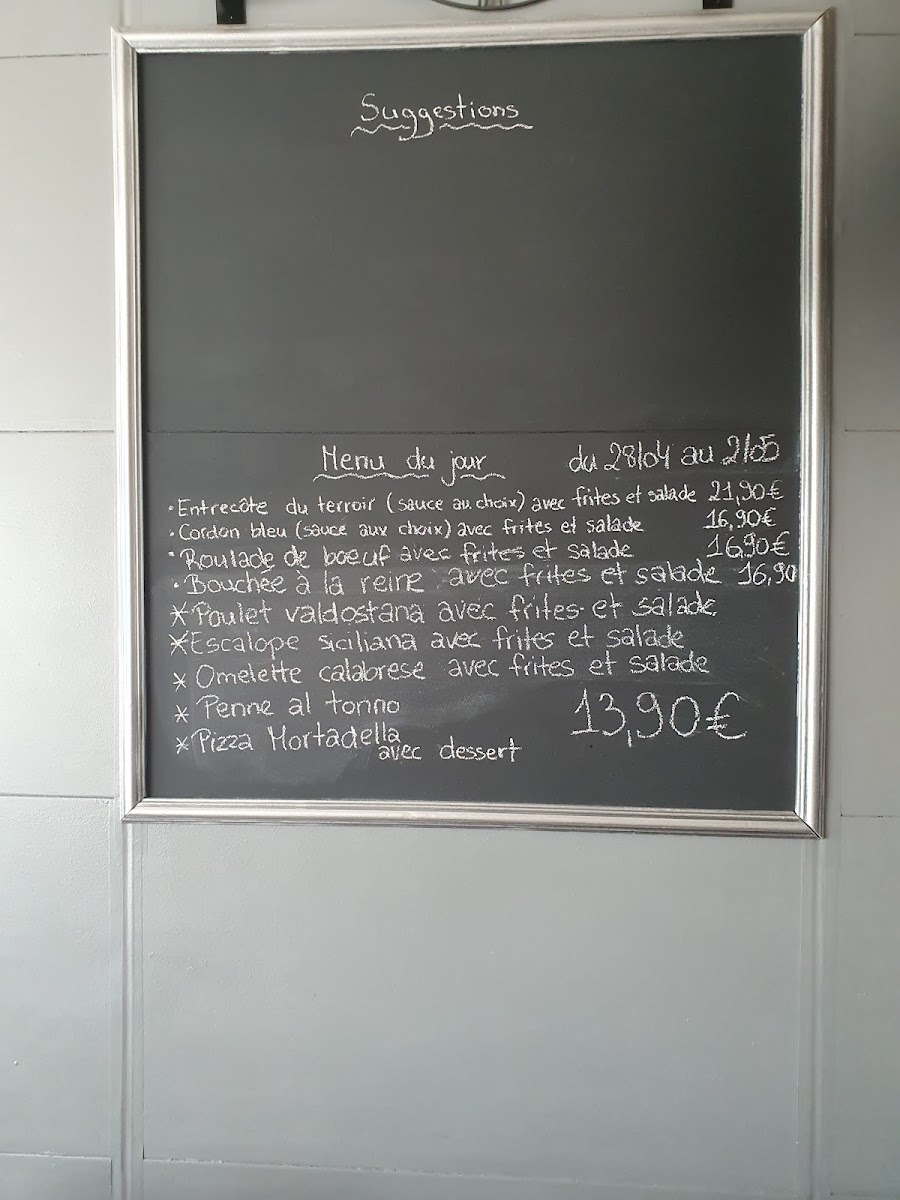 Suggestions
Menu du jour du 28/04 au 2/05
• Entrecôte du terroir (sauce au choix) avec frites et salade 21,90€
• Cordon bleu (sauce aux choix) avec frites et salade 16,90€
• Roulade de boeuf avec frites et salade 16,90€
• Bouchée à la reine avec frites et salade 16,90
* Poulet valdostana avec frites et salade
* Escalope siciliana avec frites et salade
* Omelette calabrese avec frites et salade
* Penne al tonno
* Pizza Mortadella
avec dessert
13,90€